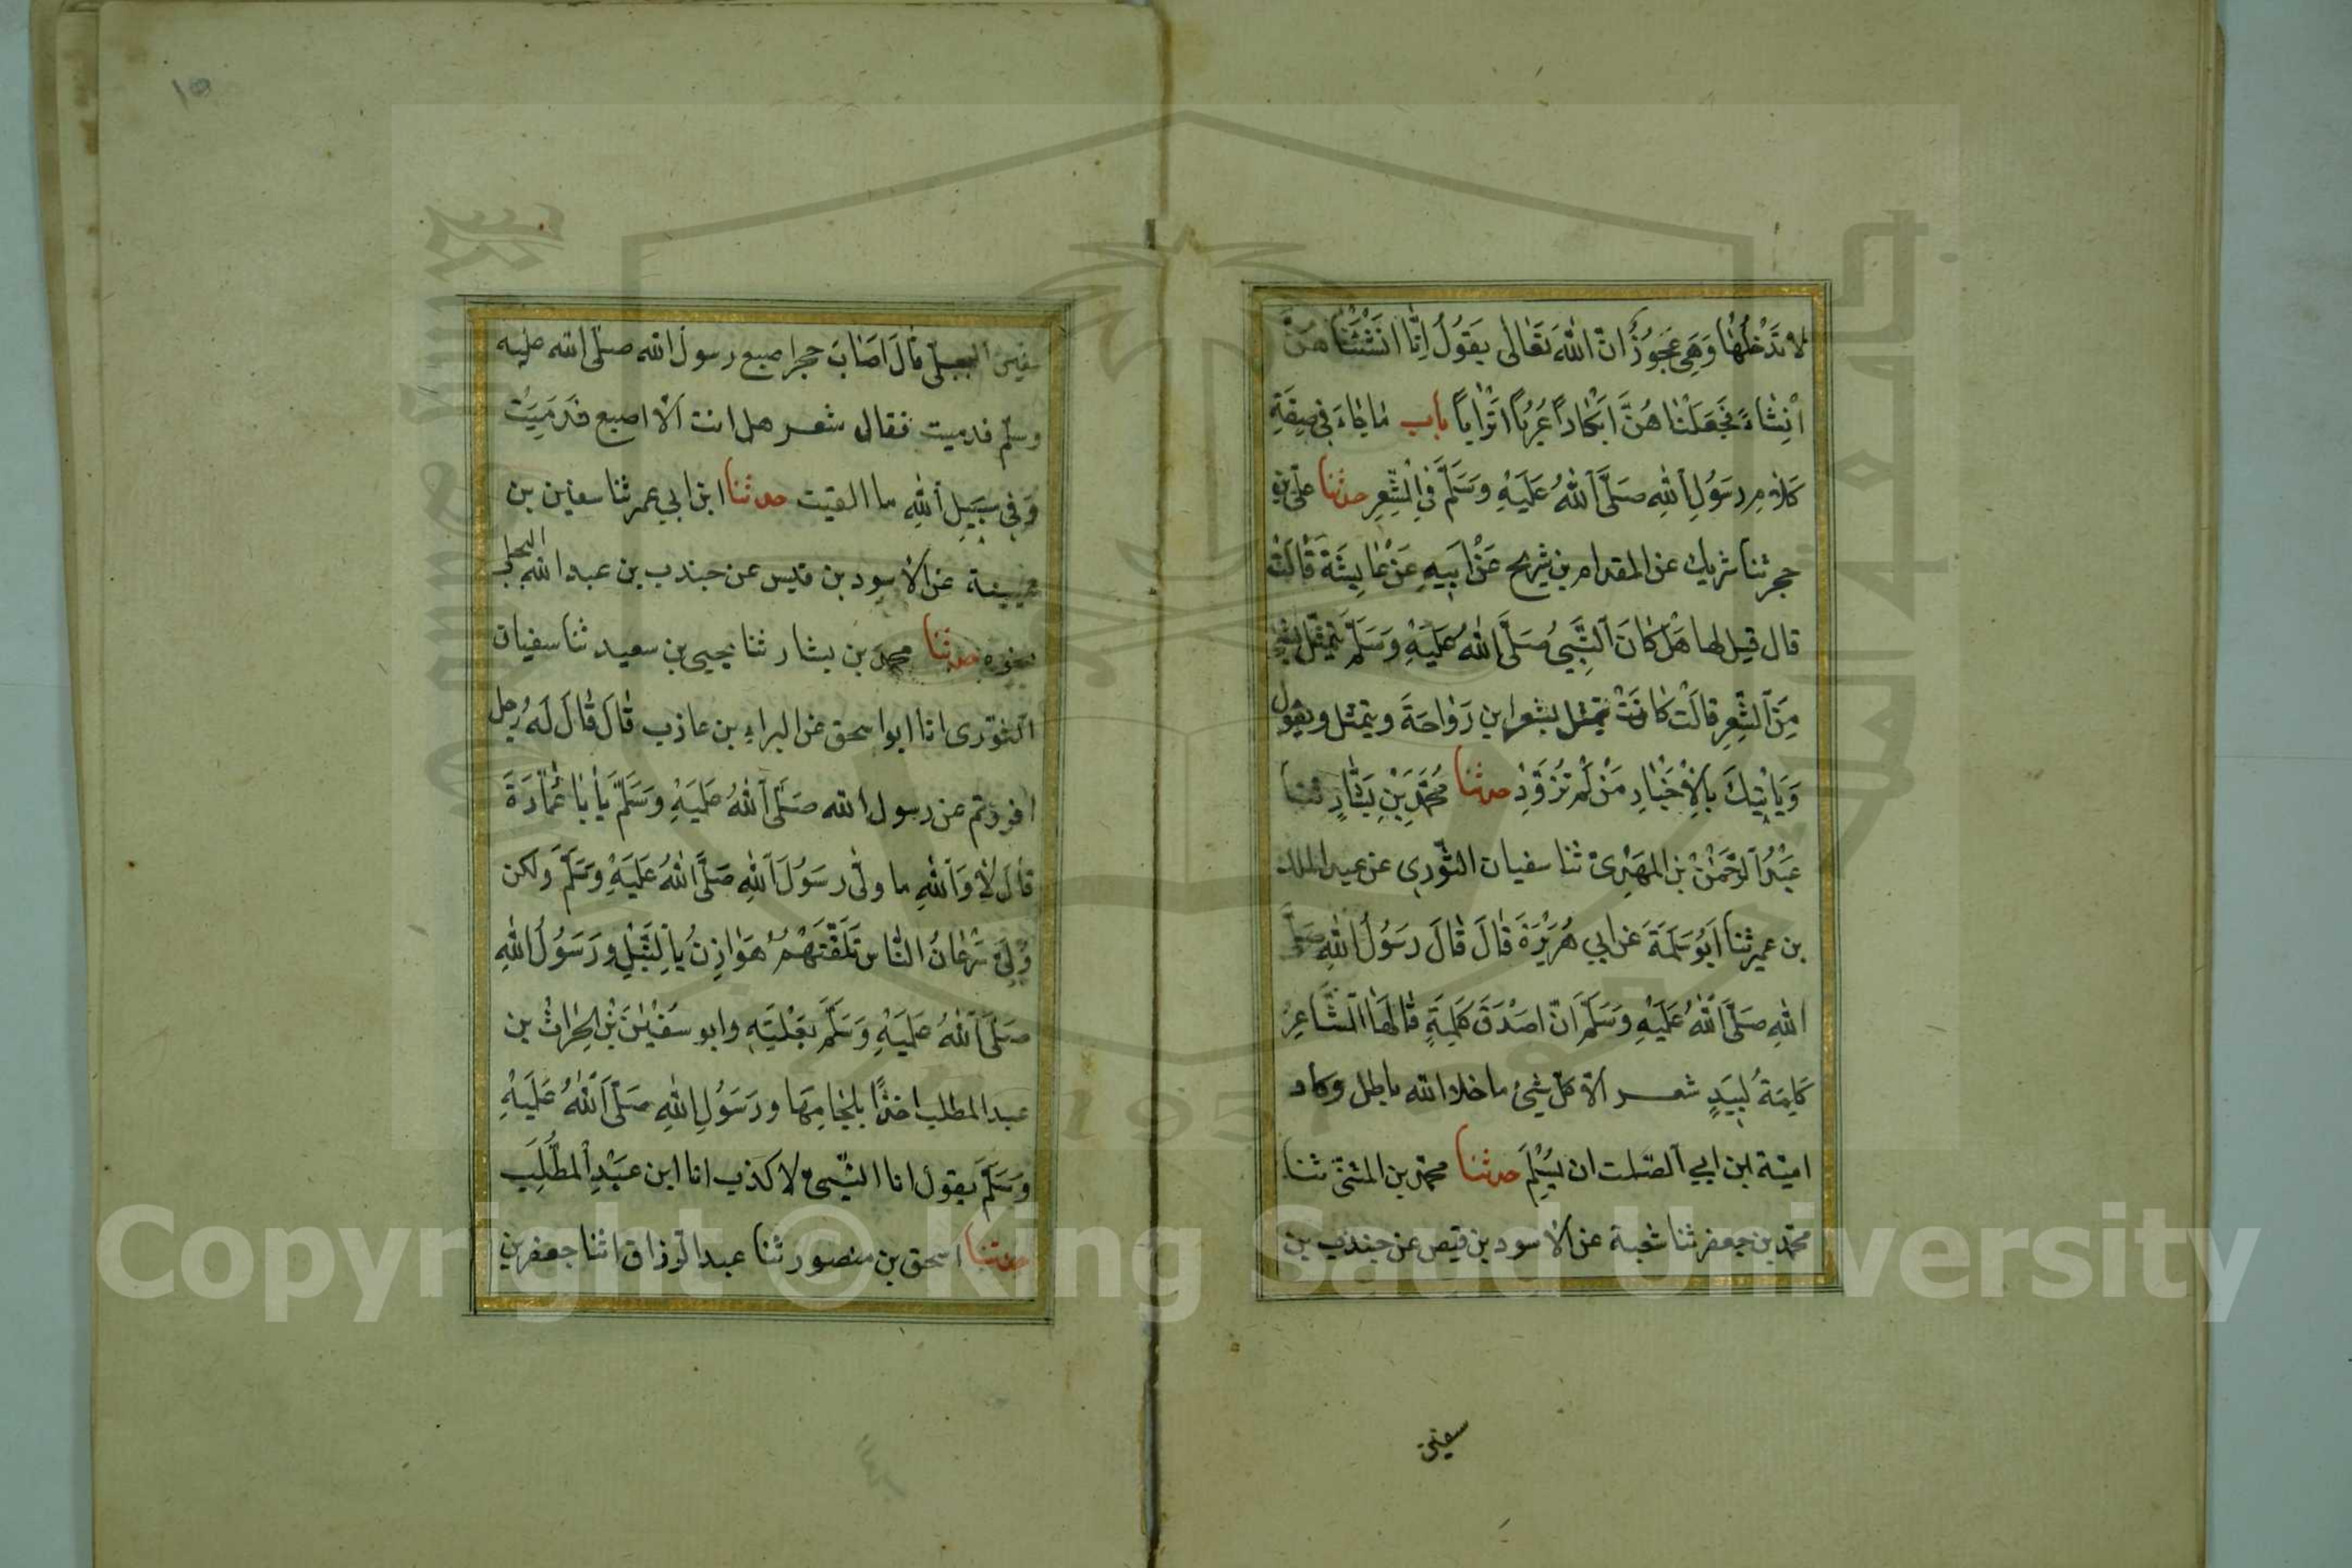 لا تَدْخُلُهٰا وَهِيَ عَجُوزٌ اِنَّ اللّٰهَ تَعٰالٰى يَقُولُ اِنّٰا اَنْشَئْنٰا هُنَّ
اِنْشٰاءً فَجَعَلْنٰا هُنَّ اَبْكٰاراً عُرُباً اَتْرٰاباً باب مٰا جٰاءَ فى صِفَةِ
كَلاٰمِ رَسُولِ اللّٰهِ صَلَّى اللّٰهُ عَلَيْهِ وَسَلَّمَ فِى الشِّعْرِ حدثنا على بن
حجر ثنا شريك عن المقدام بن شريح عَنْ اَبِيهِ عَنْ عٰايِشَةَ قٰالَتْ
قال قيل لها هَلْ كٰانَ النَّبِىُّ صَلَّى اللّٰهُ عَلَيْهِ وَسَلَّمَ يَتَمَثَّلُ بشئ
مِنَ الشِّعْرِ قالَتْ كٰانَتْ يتمثل بشعر ابن رَوٰاحَةَ ويتمثل ويقول
وَيَاْتِيْكَ بِالْاَخْبٰارِ مَنْ لَمْ تُزَوَّدِ حدثنا مُحَمَّدُ بْنِ بَشّٰارٍ ثنا
عَبْدُ الرَّحْمٰنْ بْنِ المَهْدِىْ ثنا سفيان الثّورى عن عبد الملك
بن عمير ثنا اَبُو سَلَمَةَ عَن ابي هُرَيْرَةَ قٰالَ قٰالَ رَسُولُ اللّٰهِ صَلَّى
اللّٰهِ صَلَّى اللّٰهُ عَلَيْهِ وَسَلَّمَ اِنَّ اَصْدَقَ كَلِمَةٍ قٰالَهَا الشّٰاعِرُ
كَلِمَةُ لَبِيَدٍ شعر اَلا كلّ شَيْئ ما خلا الله باطل وكاد
اميّة ابن ابي الصّلت ان يُسْلِمَ حدثنا محمّد بن المثنّى ثنا
محمّد بن جعفر ثنا شعبة عن الاسود بن قيص عن جندب بن
سفين
١٥
سفين البجلّى قٰالَ اَصٰابَ حجر اصبع رسول الله صلّى الله عليه
وسلّم فدميت فقال شعر هل انت اِلّا اصبع دَمِيْتِ
وَفى سَبِيلِ اللّٰهِ ما القيت حدثنا ابن ابي عمر ثنا سفين بن
عيينة عن الاسود بن قيس عن جندب بن عبد الله البجلى
نحوه حدثنا محمّد بن بشار ثنا يحيى بن سعيد ثنا سفيان
الثّورى انا ابو اسحق عن البراء بن عازب قٰالَ قٰالَ لَهُ رجل
افررتم عن رسول الله صَلَّى اللّٰهُ عَلَيْهِ وَسَلَّمَ يٰا بٰا عُمٰارَةَ
قٰالَ لاٰ وَاللّٰهِ ما ولّى رَسُولُ اللّٰهِ صَلَّى اللّٰهُ عَلَيْهِ وَسَلَّمَ ولكن
وَلّىٰ سَرْعٰانُ النّٰاسِ تَلَقَّتْهُمْ هَوٰازِنُ بِالنَّبْلِ ورَسُولُ اللّٰهِ
صَلَّى اللّٰهُ عَلَيْهِ وَسَلَّمَ بَغْلَتِهِ وابو سُفْيٰنَ بْنِ الحٰرِثْ بن
عبد المطلب اخذاً بلجٰامِهٰا ورَسُولُ اللّٰهِ صَلَّى اللّٰهُ عَلَيْهِ
وَسَلَّمَ يقول انا النّبىّ لا كذب انا ابن عَبْدِ الْمُطَّلِبِ
حدثنا اسحق بن منصور ثنا عبد الرزاق اثنا جعفر بن
Copyright © King Saud University
1957